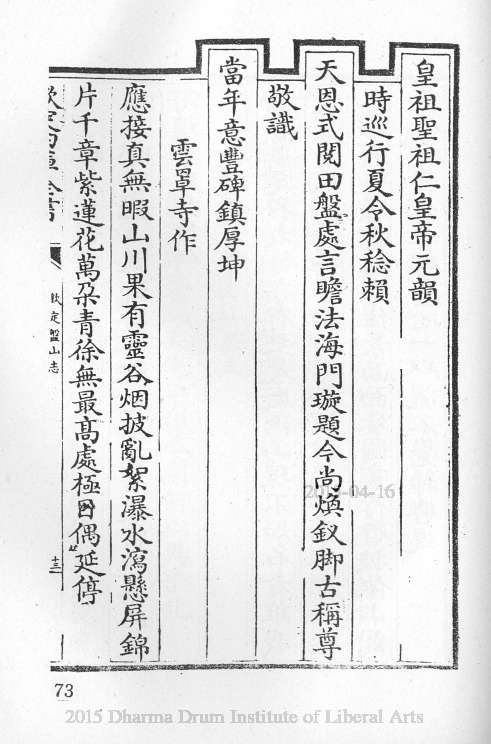 皇祖聖祖仁皇帝元韻
時巡行夏令秋稔賴
天恩式閱田盤處言瞻法海門璇題今尚煥釵脚古稱尊
敬識
當年意豐碑鎮厚坤
雲罩寺作
應接真無暇山川果有靈谷烟披亂絮瀑水瀉懸屏錦
片千章紫蓮花萬朶青徐無最高處極目偶延停
欽定盤山志
十三
2015-04-16
73
2015 Dharma Drum Institute of Liberal Arts